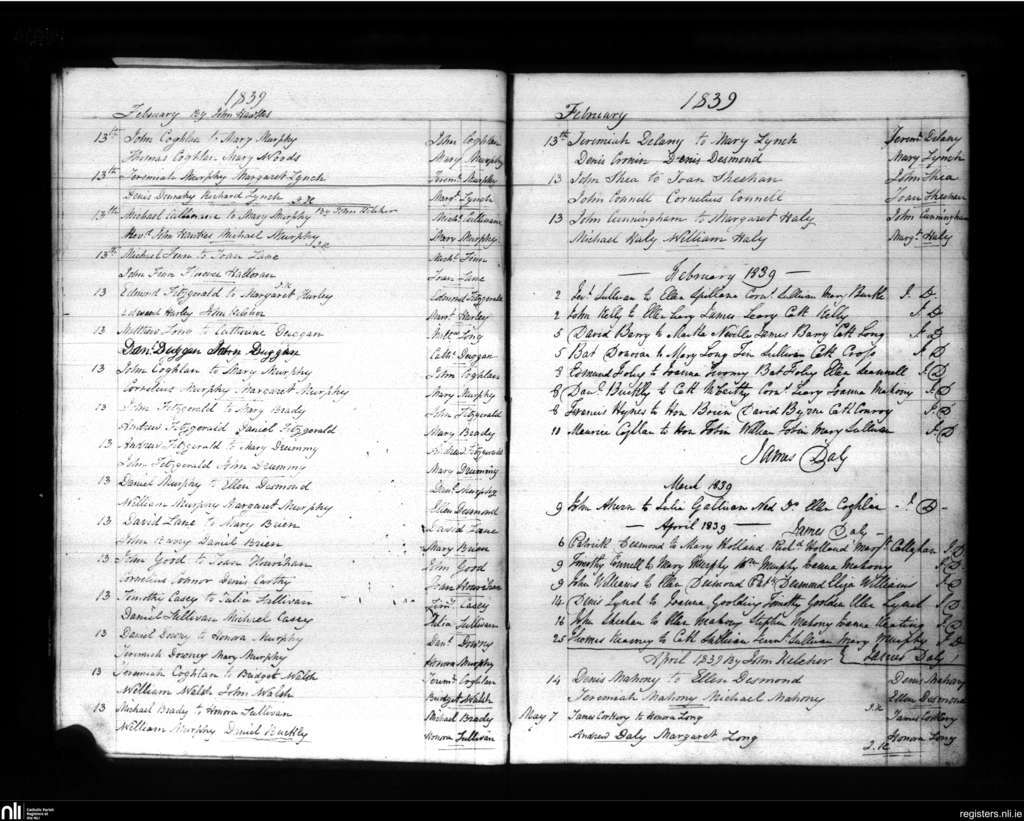 1839
February By John Hawkes
13th John Coghlan to Mary Murphy John Coghlan
Thomas Coghlan Mary Woods Mary Murphy
13th Jeremiah Murphy Margaret Lynch Jeremh Murphy
Denis Richard Lynch J.K. Margt Lynch
13th Michael Cullinane to Mary Murphy By John Kelcher Michl Cullinane
Revd John Hawkes Michael Murphy J.K. Mary Murphy
13th Michael Finn to Joan Lane Michl Finn
John Finn Florence Halloran Joan Lane
13 Edmund Fitzgerald to Margaret Hurley J.K. Edmund Fitzgerald
Edward Hurley John Kelcher Margt Hurley
13 Matthew Long to Catherine Duggan Mattw Long
Danl Duggan John Duggan Cathe Duggan
13 John Coghlan to Mary Murphy John Coghlan
Cornelius Murphy Margaret Murphy Mary Murphy
13 John Fitzgerald to Mary Brady John Fitzgerald
Andrew Fitzgerald Daniel Fitzgerald Mary Brady
13 Andrew Fitzgerald to Mary Drummy Andrew Fitzgerald
John Fitzgerald John Drummy Mary Drummy
13 Daniel Murphy to Ellen Desmond Danl Murphy
William Murphy Margaret Murphy Ellen Desmond
13 David Lane to Mary Brien David Lane
John Daniel Brien Mary Brien
13 John Good to Joan Hourihan John Good
Cornelius Connor Denis Carthy Joan Hourihan
13 Timothy Casey to Julia Sullivan Timy Casey
Daniel Sullivan Michael Casey Julia Sullivan
13 Daniel Downy to Honora Murphy Danl Downy
Jeremiah Downey Mary Murphy Honora Murphy
13 Jeremiah Coghlan to Bridget Walsh Jeremh Coghlan
William Walsh John Walsh Bridget Walsh
13 Michael Brady to Honora Sullivan Michael Brady
William Murphy Daniel Buckly Honora Sullivan
1839
February
13th Jeremiah Delany to Mary Lynch Jeremh Delany
Denis Cronin Denis Desmond Mary Lynch
13 John Shea to Joan Sheehan John Shea
John Connell Cornelius Connell Joan Sheehan
13 John Cunningham to Margaret Haly John Cunningham
Michael Haly William Haly Margt Haly
— February 1839 —
2 Sullivan to Ellen Spillane Corns Sullivan Mary Burke J. D
2 John Kelly to Ellen Leary James Leary Cath Kelly J. D
5 David Barry to Neville James Barry Cath Long J. D
5 Bat Donovan to Mary Long Sullivan Cath J. D
8 Edmund Foley to Joanna Bat Foley Ellen J. D
8 Danl Buckly to Cath McCarthy Corns Leary Joanna Mahony J. D
8 Francis Hynes to Hon Brien David Byrne Cath Conroy J. D
11 Maurice Coghlan to Hon Tobin William Tobin Mary Sullivan J. D
James Daly
March 1839
9 John Ahern to Julia Galliven Ned Ellen Coghlan - J. D -
— April 1839 — James Daly
6 Patrick Desmond to Mary Holland Richd Holland Margt Callaghan J. D
9 Timothy Connell to Mary Murphy Wm Murphy Joanna Mahony J. D
9 John Williams to Ellen Desmond Patk Desmond Eliza Williams J. D
14 Denis Lynch to Joanna Goolding Timothy Goolden Ellen Lynch J. D
16 John Sheehan to Ellen Mahony Stephen Mahony Joanna Keating J. D
25 Thomas Kearney to Cath Sullivan Sullivan Mary Murphy J. D
April 1839 By John Kelcher James Daly
14 Denis Mahony to Ellen Desmond Denis Mahony
Jeremiah Mahony Michael Mahony J.K Ellen Desmond
May 7 James Corkery to Honora Long James Corkery
Andrew Daly Margaret Long Honora Long
J.K.
nli Catholic Parish Registers at the NLI
registers.nli.ie